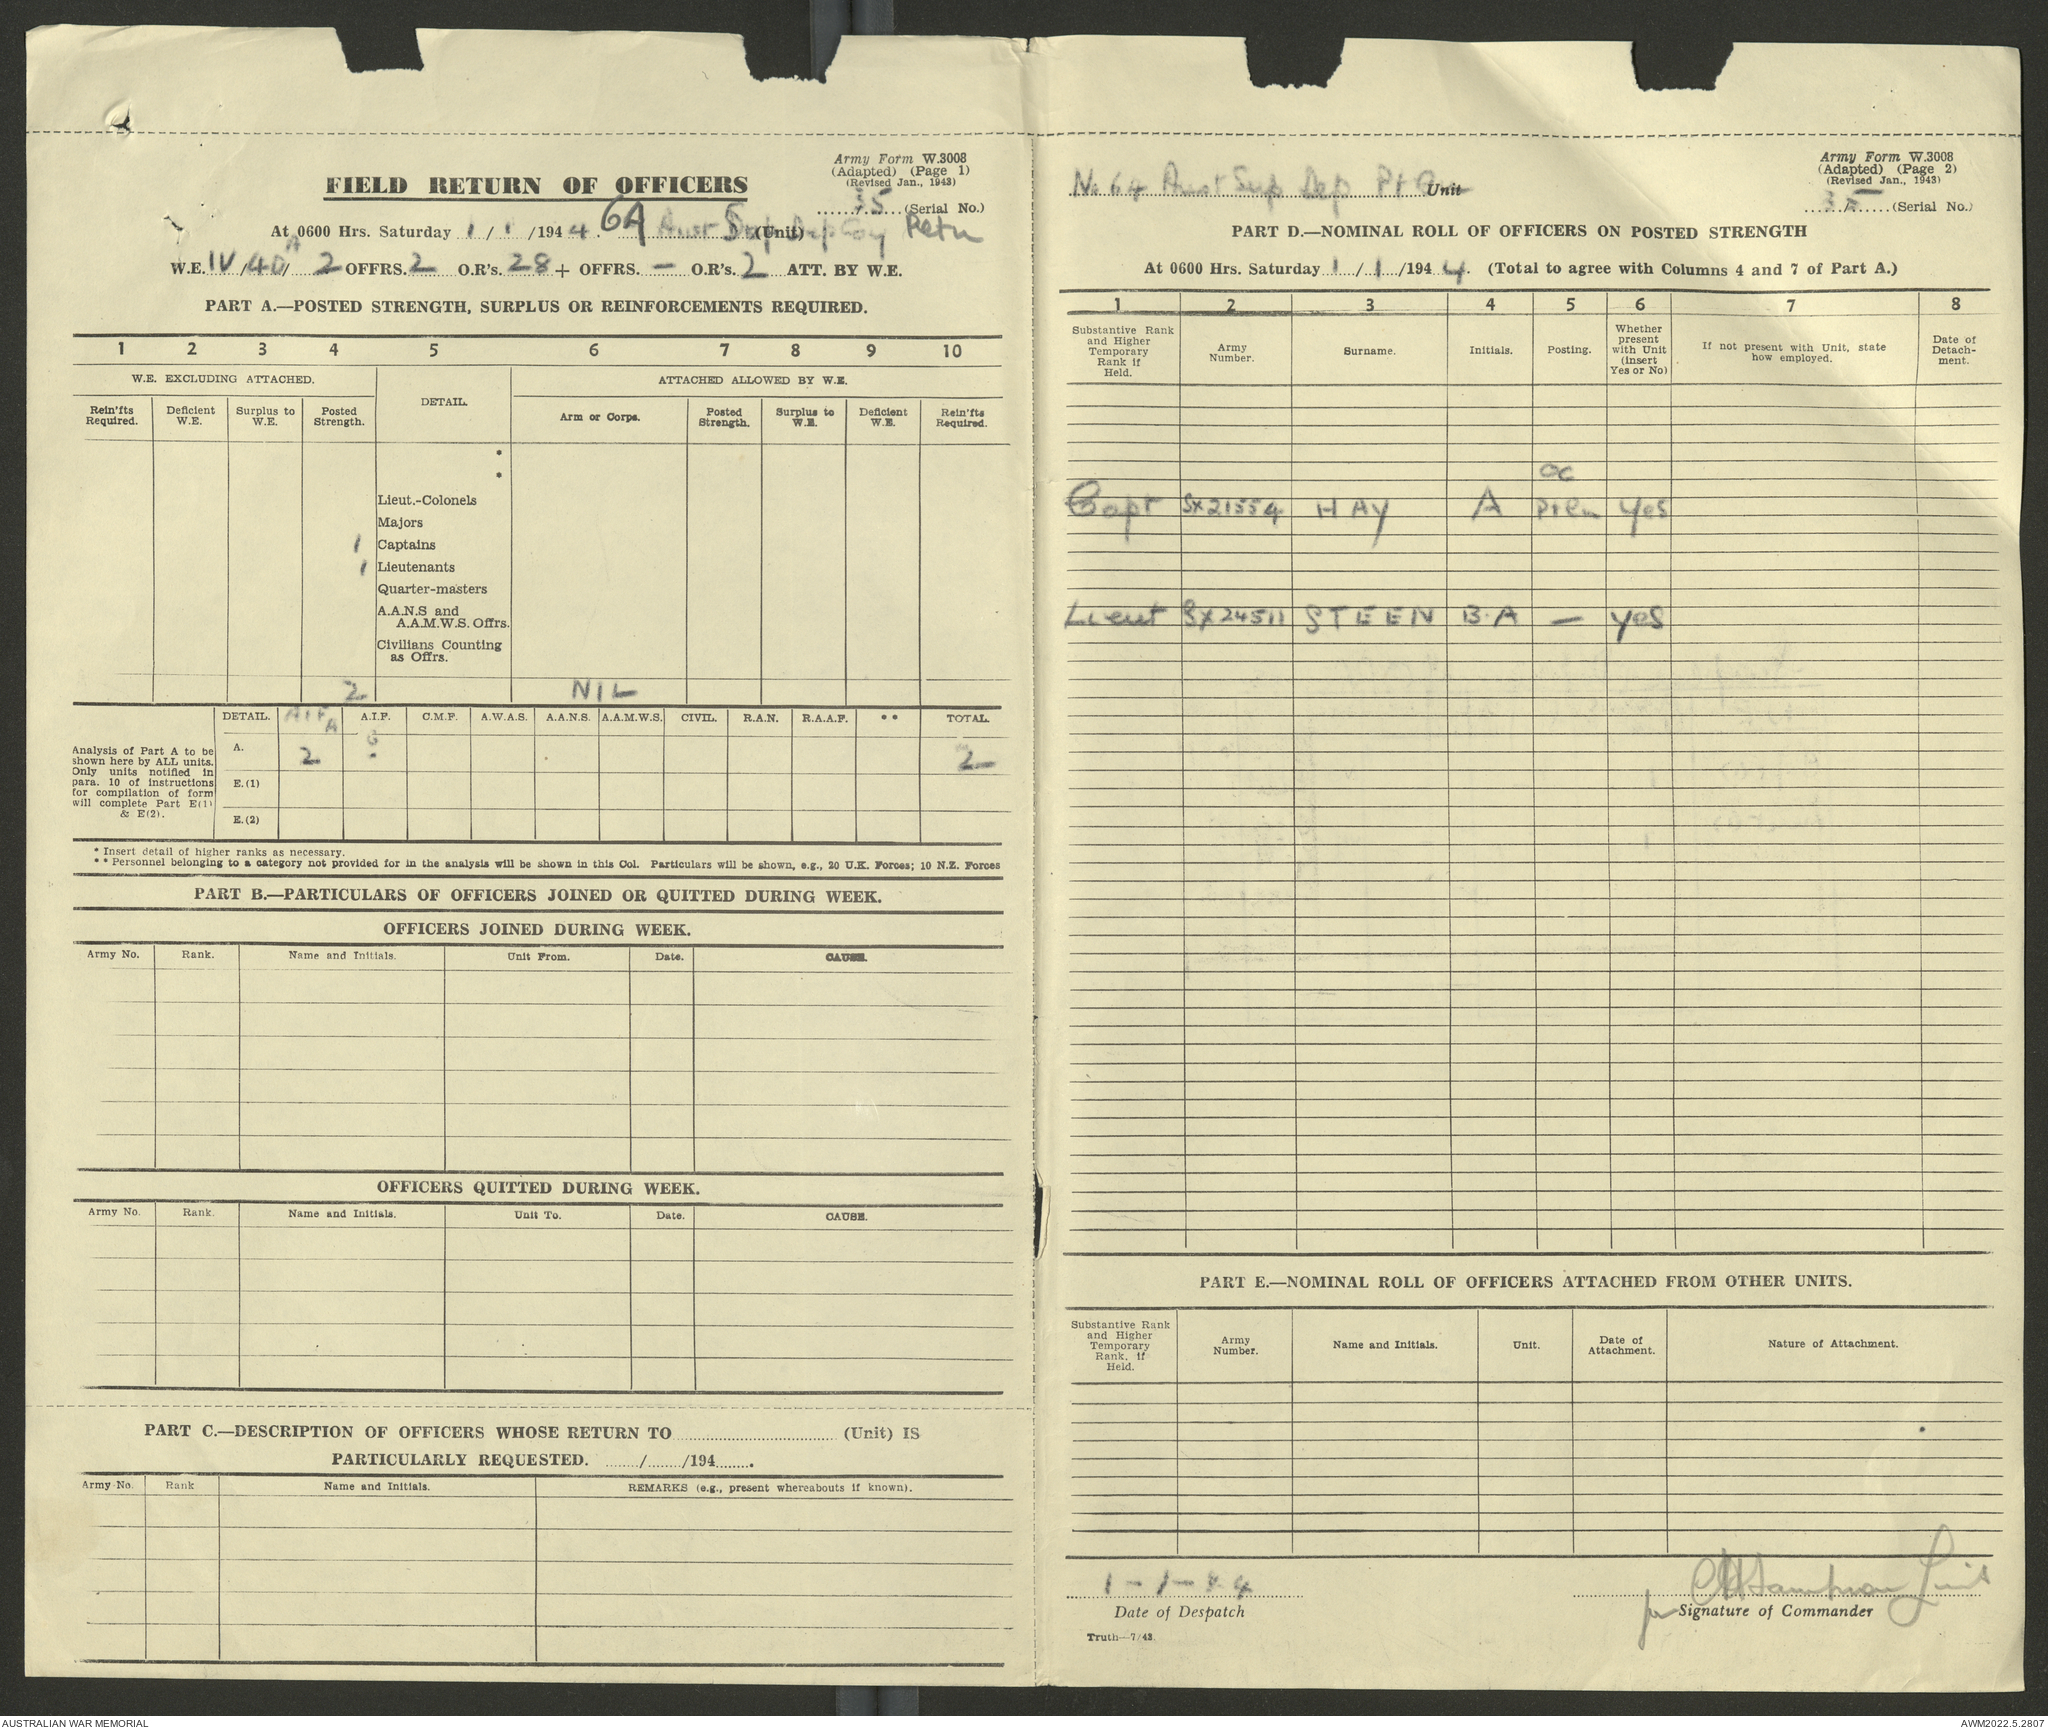 Army Form W.3008
(Adapted) (Page 1)
(Revised Jan., 1943)
35 (Serial No.)
FIELD RETURN OF OFFICERS
At 0600 Hrs. Saturday 1/1/1944. 64 Aust Sup Dep Coy Petn (Unit)
W.E. IV/40A/2 OFFRS. 2 O.R's. 28 + OFFRS. — O.R's. 2 ATT. BY W.E.
PART A.—POSTED STRENGTH, SURPLUS OR REINFORCEMENTS REQUIRED.
1 2 3 4 5 6 7 8 9 10
W.E. EXCLUDING ATTACHED. DETAIL. ATTACHED ALLOWED BY W.E.
Rein'fts Required. Deficient W.E. Surplus to W.E. Posted Strength. Arm or Corps. Posted Strength. Surplus to W.E. Deficient W.E. Rein'fts Required.
*
*
Lieut.-Colonels
Majors
1 Captains
1 Lieutenants
Quarter-masters
A.A.N.S and
A.A.M.W.S. Offrs.
Civilians Counting
as Offrs.
2 NIL
DETAIL. AIF A A.I.F. C.M.F. A.W.A.S. A.A.N.S. A.A.M.W.S. CIVIL. R.A.N. R.A.A.F. ** TOTAL.
Analysis of Part A to be
shown here by ALL units.
Only units notified in
para. 10 of instructions
for compilation of form
will complete Part E(1)
& E(2).
A. 2 2
E.(1)
E.(2)
* Insert detail of higher ranks as necessary.
** Personnel belonging to a category not provided for in the analysis will be shown in this Col. Particulars will be shown, e.g., 20 U.K. Forces; 10 N.Z. Forces
PART B.—PARTICULARS OF OFFICERS JOINED OR QUITTED DURING WEEK.
OFFICERS JOINED DURING WEEK.
Army No. Rank. Name and Initials. Unit From. Date. CAUSE.
OFFICERS QUITTED DURING WEEK.
Army No. Rank. Name and Initials. Unit To. Date. CAUSE.
PART C.—DESCRIPTION OF OFFICERS WHOSE RETURN TO (Unit) IS
PARTICULARLY REQUESTED. / /194 .
Army No. Rank Name and Initials. REMARKS (e.g., present whereabouts if known).
Army Form W.3008
(Adapted) (Page 2)
(Revised Jan., 1943)
35 (Serial No.)
No 64 Aust Sup Dep Pt Unit
PART D.—NOMINAL ROLL OF OFFICERS ON POSTED STRENGTH
At 0600 Hrs. Saturday 1/1/1944. (Total to agree with Columns 4 and 7 of Part A.)
1 2 3 4 5 6 7 8
Substantive Rank and Higher Temporary Rank if Held. Army Number. Surname. Initials. Posting. Whether present with Unit (insert Yes or No) If not present with Unit, state how employed. Date of Detach-ment.
OC
Capt SX21554 HAY A Yes
Lieut SX24511 STEEN B.A — yes
PART E.—NOMINAL ROLL OF OFFICERS ATTACHED FROM OTHER UNITS.
Substantive Rank and Higher Temporary Rank, if Held. Army Number. Name and Initials. Unit. Date of Attachment. Nature of Attachment.
1-1-44
Date of Despatch
for Signature of Commander
Truth—7/43
AUSTRALIAN WAR MEMORIAL
AWM2022.5.2807